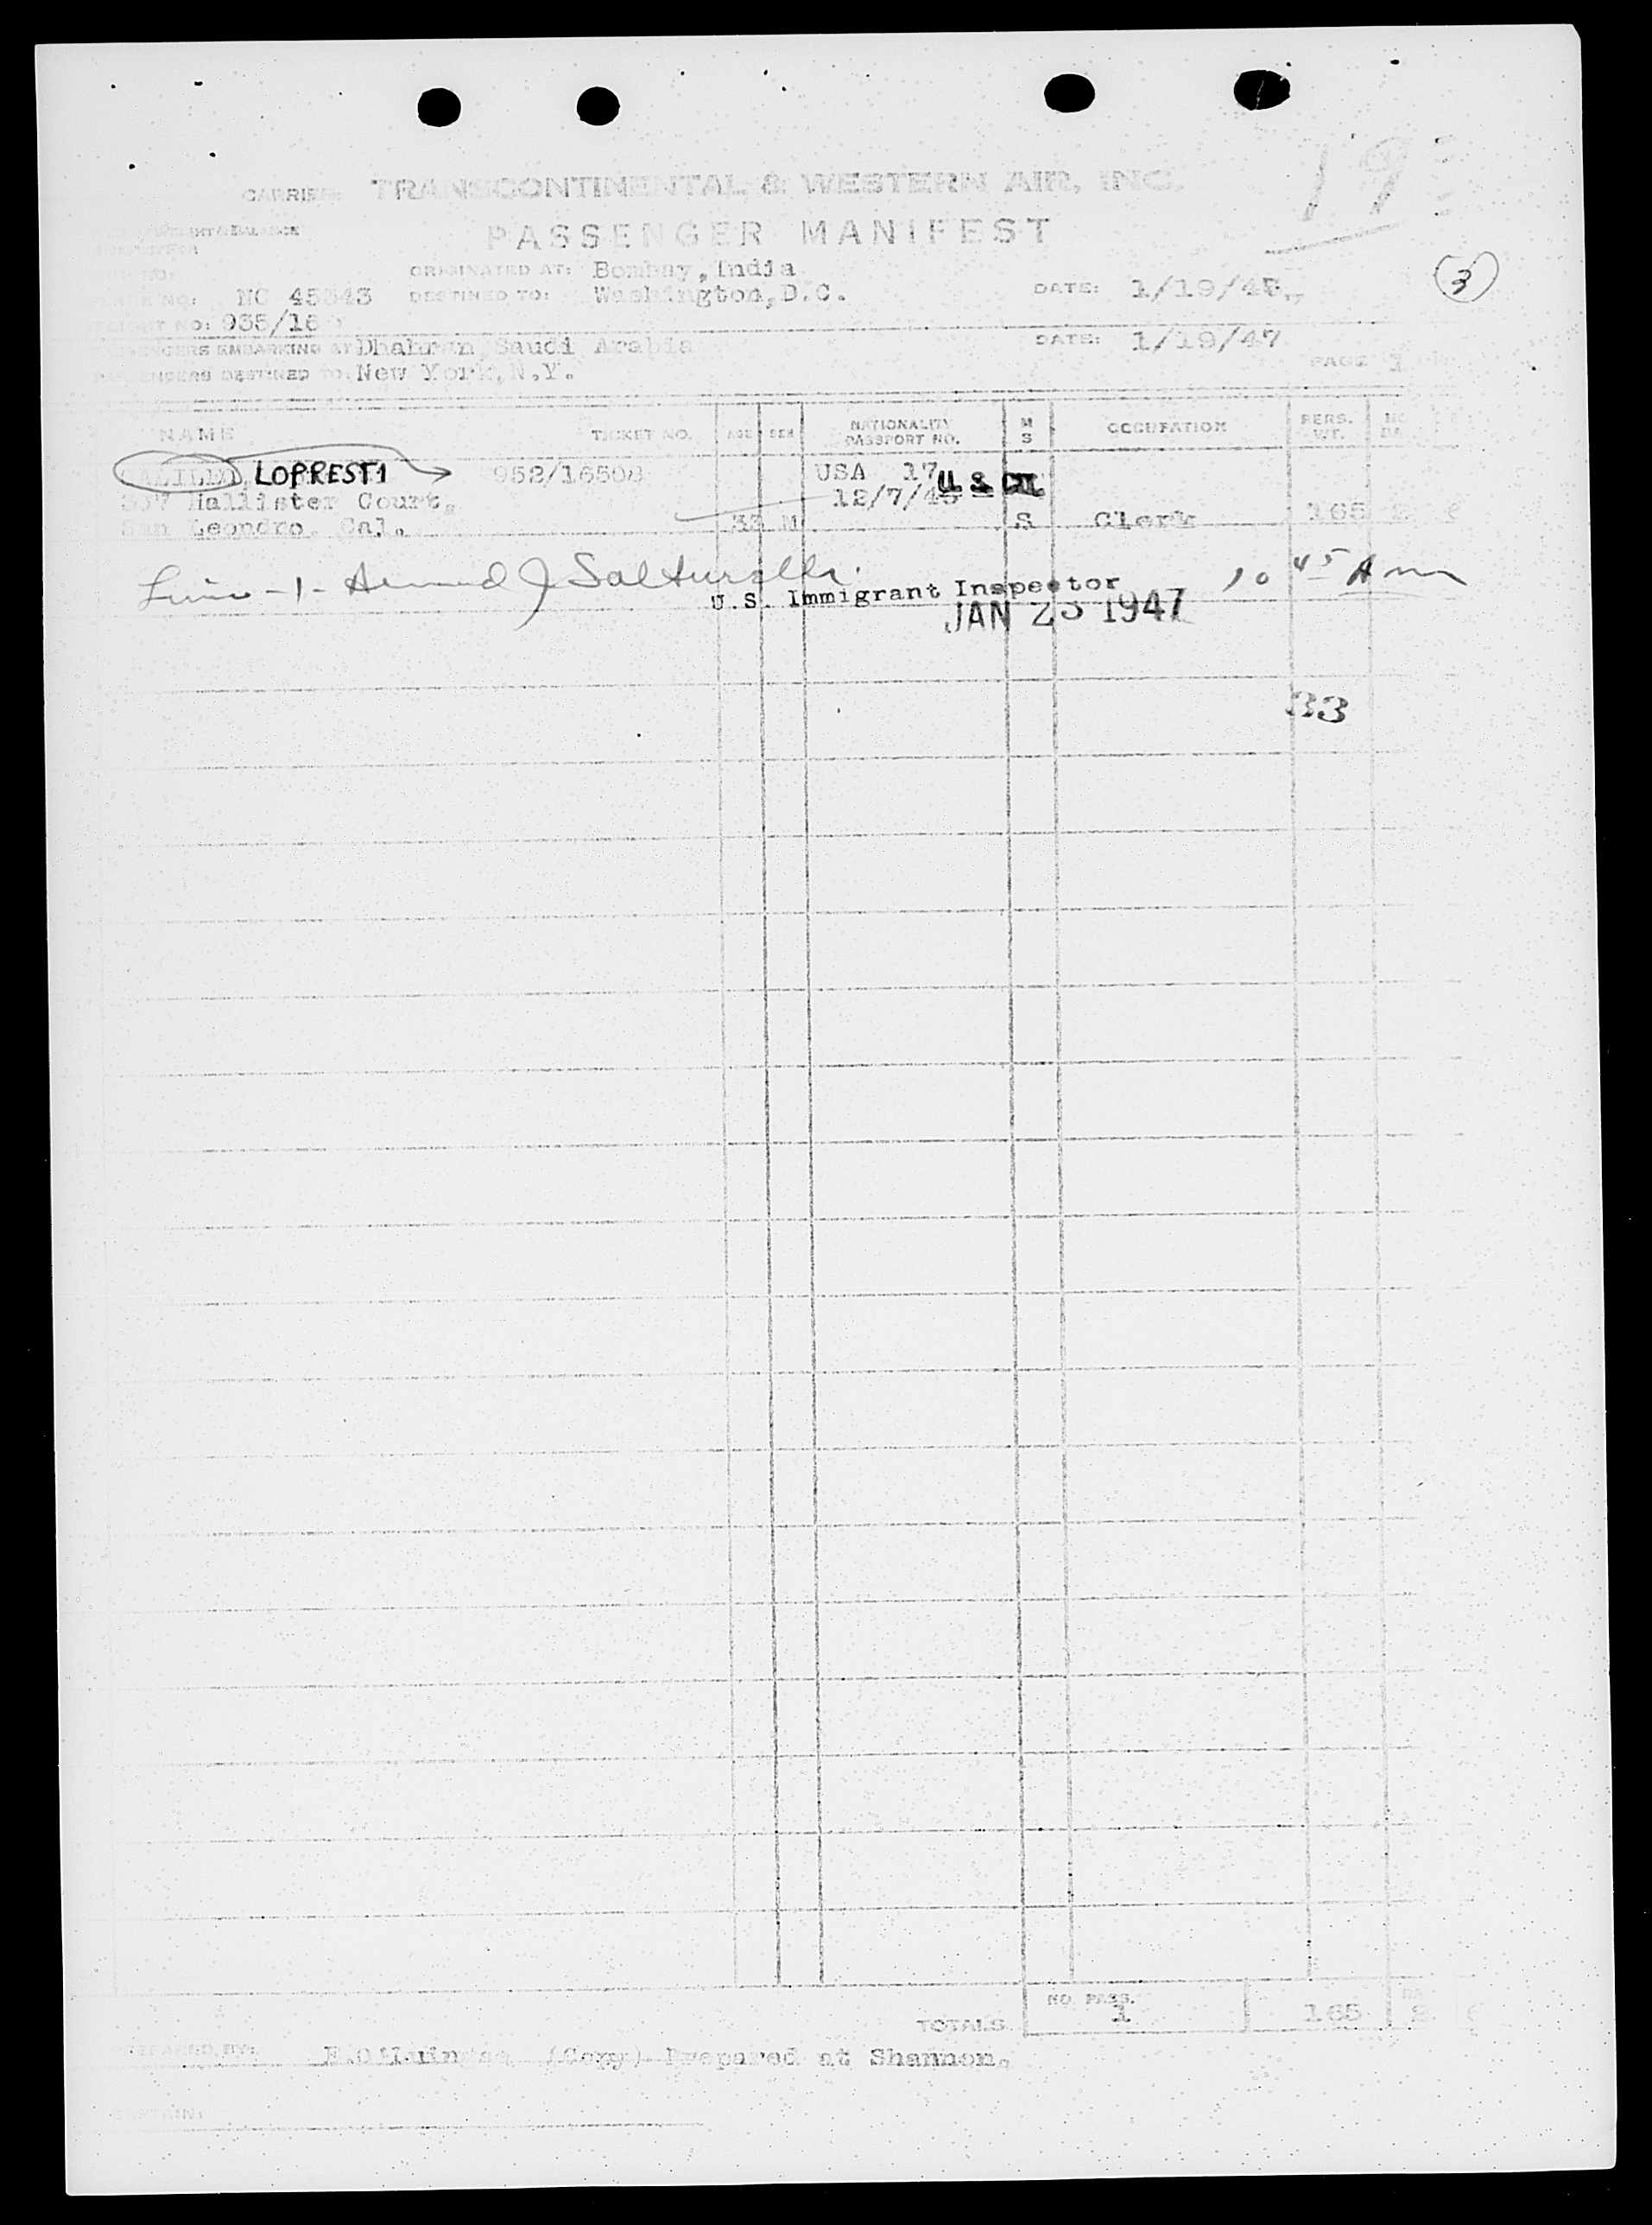 19
CARRIER: TRANSCONTINENTAL & WESTERN AIR, INC.
PASSENGER MANIFEST
ORIGINATED AT: Bombay, India
NC 45343 DESTINED TO: Washington, D.C. DATE: 1/19/47 3
NO: 935/16
EMBARKING AT Dhahran, Saudi Arabia DATE: 1/19/47
DESTINED TO: New York, N.Y. PAGE 1
NAME TICKET NO. AGE SEX NATIONALITY PASSPORT NO. M S OCCUPATION PERS. WT.
LOPRESTI 952/16508 USA 17
Hallister Court, 12/7/45
San Leondro, Cal. 33 M S Clerk 165 2
Line-1- J
U.S. Immigrant Inspector 10 45 Am
JAN 23 1947
33
NO. PASS.
TOTALS 1 165 2
PREPARED BY: (Copy) Prepared at Shannon.
CAPTAIN: